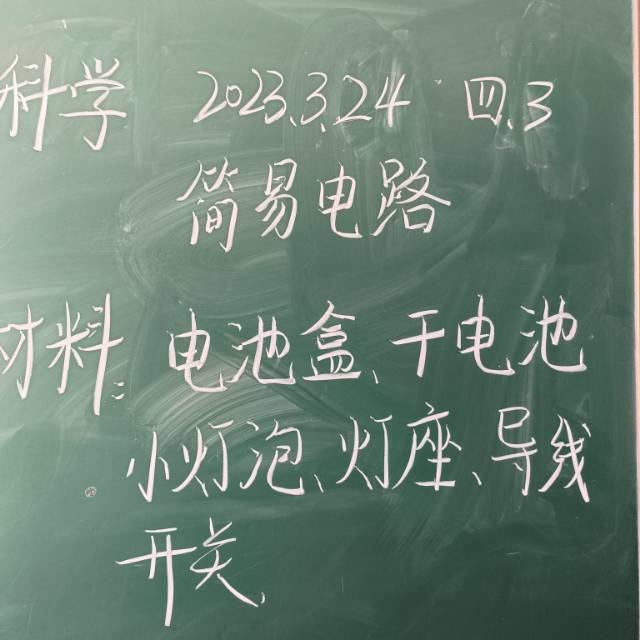 科学 2023.3.24 四.3
简易电路
材料: 电池盒、干电池
小灯泡、灯座、导线
开关、